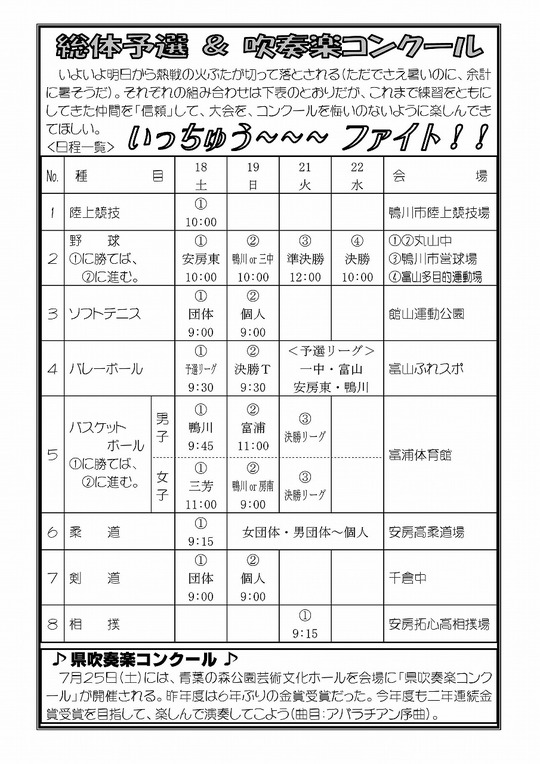 総体予選 & 吹奏楽コンクール
いよいよ明日から熱戦の火ぶたが切って落とされる(ただでさえ暑いのに、余計
に暑そうだ)。それぞれの組み合わせは下表のとおりだが、これまで練習をともに
してきた仲間を「信頼」して、大会を、コンクールを悔いのないように楽しんでき
てほしい。
いっちゅう~~~ ファイト!!
<日程一覧>
No. 種目 18土 19日 21火 22水 会場
1 陸上競技 ①10:00 鴨川市陸上競技場
2 野球 ①に勝てば、②に進む。 ①安房東10:00 ②鴨川or三中10:00 ③準決勝12:00 ④決勝10:00 ①②丸山中 ③鴨川市営球場 ④富山多目的運動場
3 ソフトテニス ①団体9:00 ②個人9:00 館山運動公園
4 バレーボール ①予選リーグ9:30 ②決勝T9:30 <予選リーグ>一中・富山 安房東・鴨川 富山ふれスポ
5 バスケットボール ①に勝てば、②に進む。 男子 ①鴨川9:45 ②富浦11:00 ③決勝リーグ 富浦体育館
女子 ①三芳11:00 ②鴨川or房南9:00 ③決勝リーグ
6 柔道 ①9:15 女団体・男団体~個人 安房高柔道場
7 剣道 ①団体9:00 ②個人9:00 千倉中
8 相撲 ①9:15 安房拓心高相撲場
♪県吹奏楽コンクール♪
7月25日(土)には、青葉の森公園芸術文化ホールを会場に「県吹奏楽コンク
ール」が開催される。昨年度は6年ぶりの金賞受賞だった。今年度も二年連続金
賞受賞を目指して、楽しんで演奏してこよう(曲目:アパラチアン序曲)。